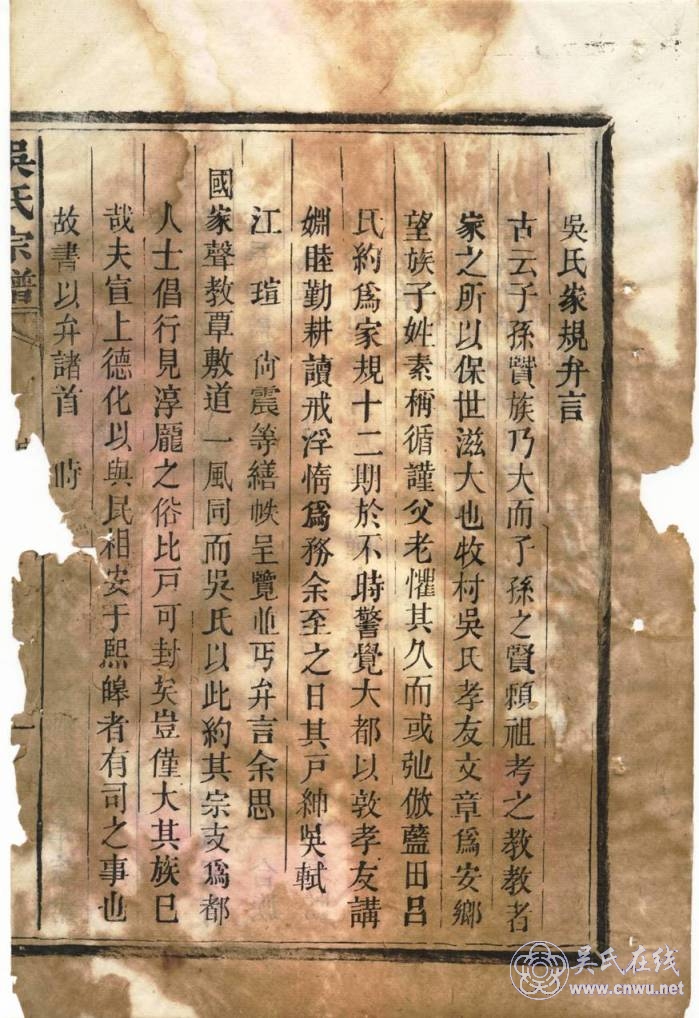 吳氏家規弁言
古云子孫賢族乃大而子孫之賢頼祖考之教教者
家之所以保世滋大也牧村吳氏孝友文章爲安鄉
望族子姓素稱循謹父老懼其久而或弛倣藍田呂
氏約爲家規十二期於不時警覺大都以敦孝友講
婣睦勤耕讀戒浮惰爲務余至之日其戸紳吳軾
江 瑄 尙震等繕帙呈覽並丐弁言余思
國家聲教覃敷道一風同而吳氏以此約其宗支爲都
人士倡行見淳龐之俗比戸可封矣豈僅大其族巳
哉夫宣上德化以與民相安于熙皞者有司之事也
故書以弁諸首 時
吳氏宗譜
吳氏在线
www.cnwu.net